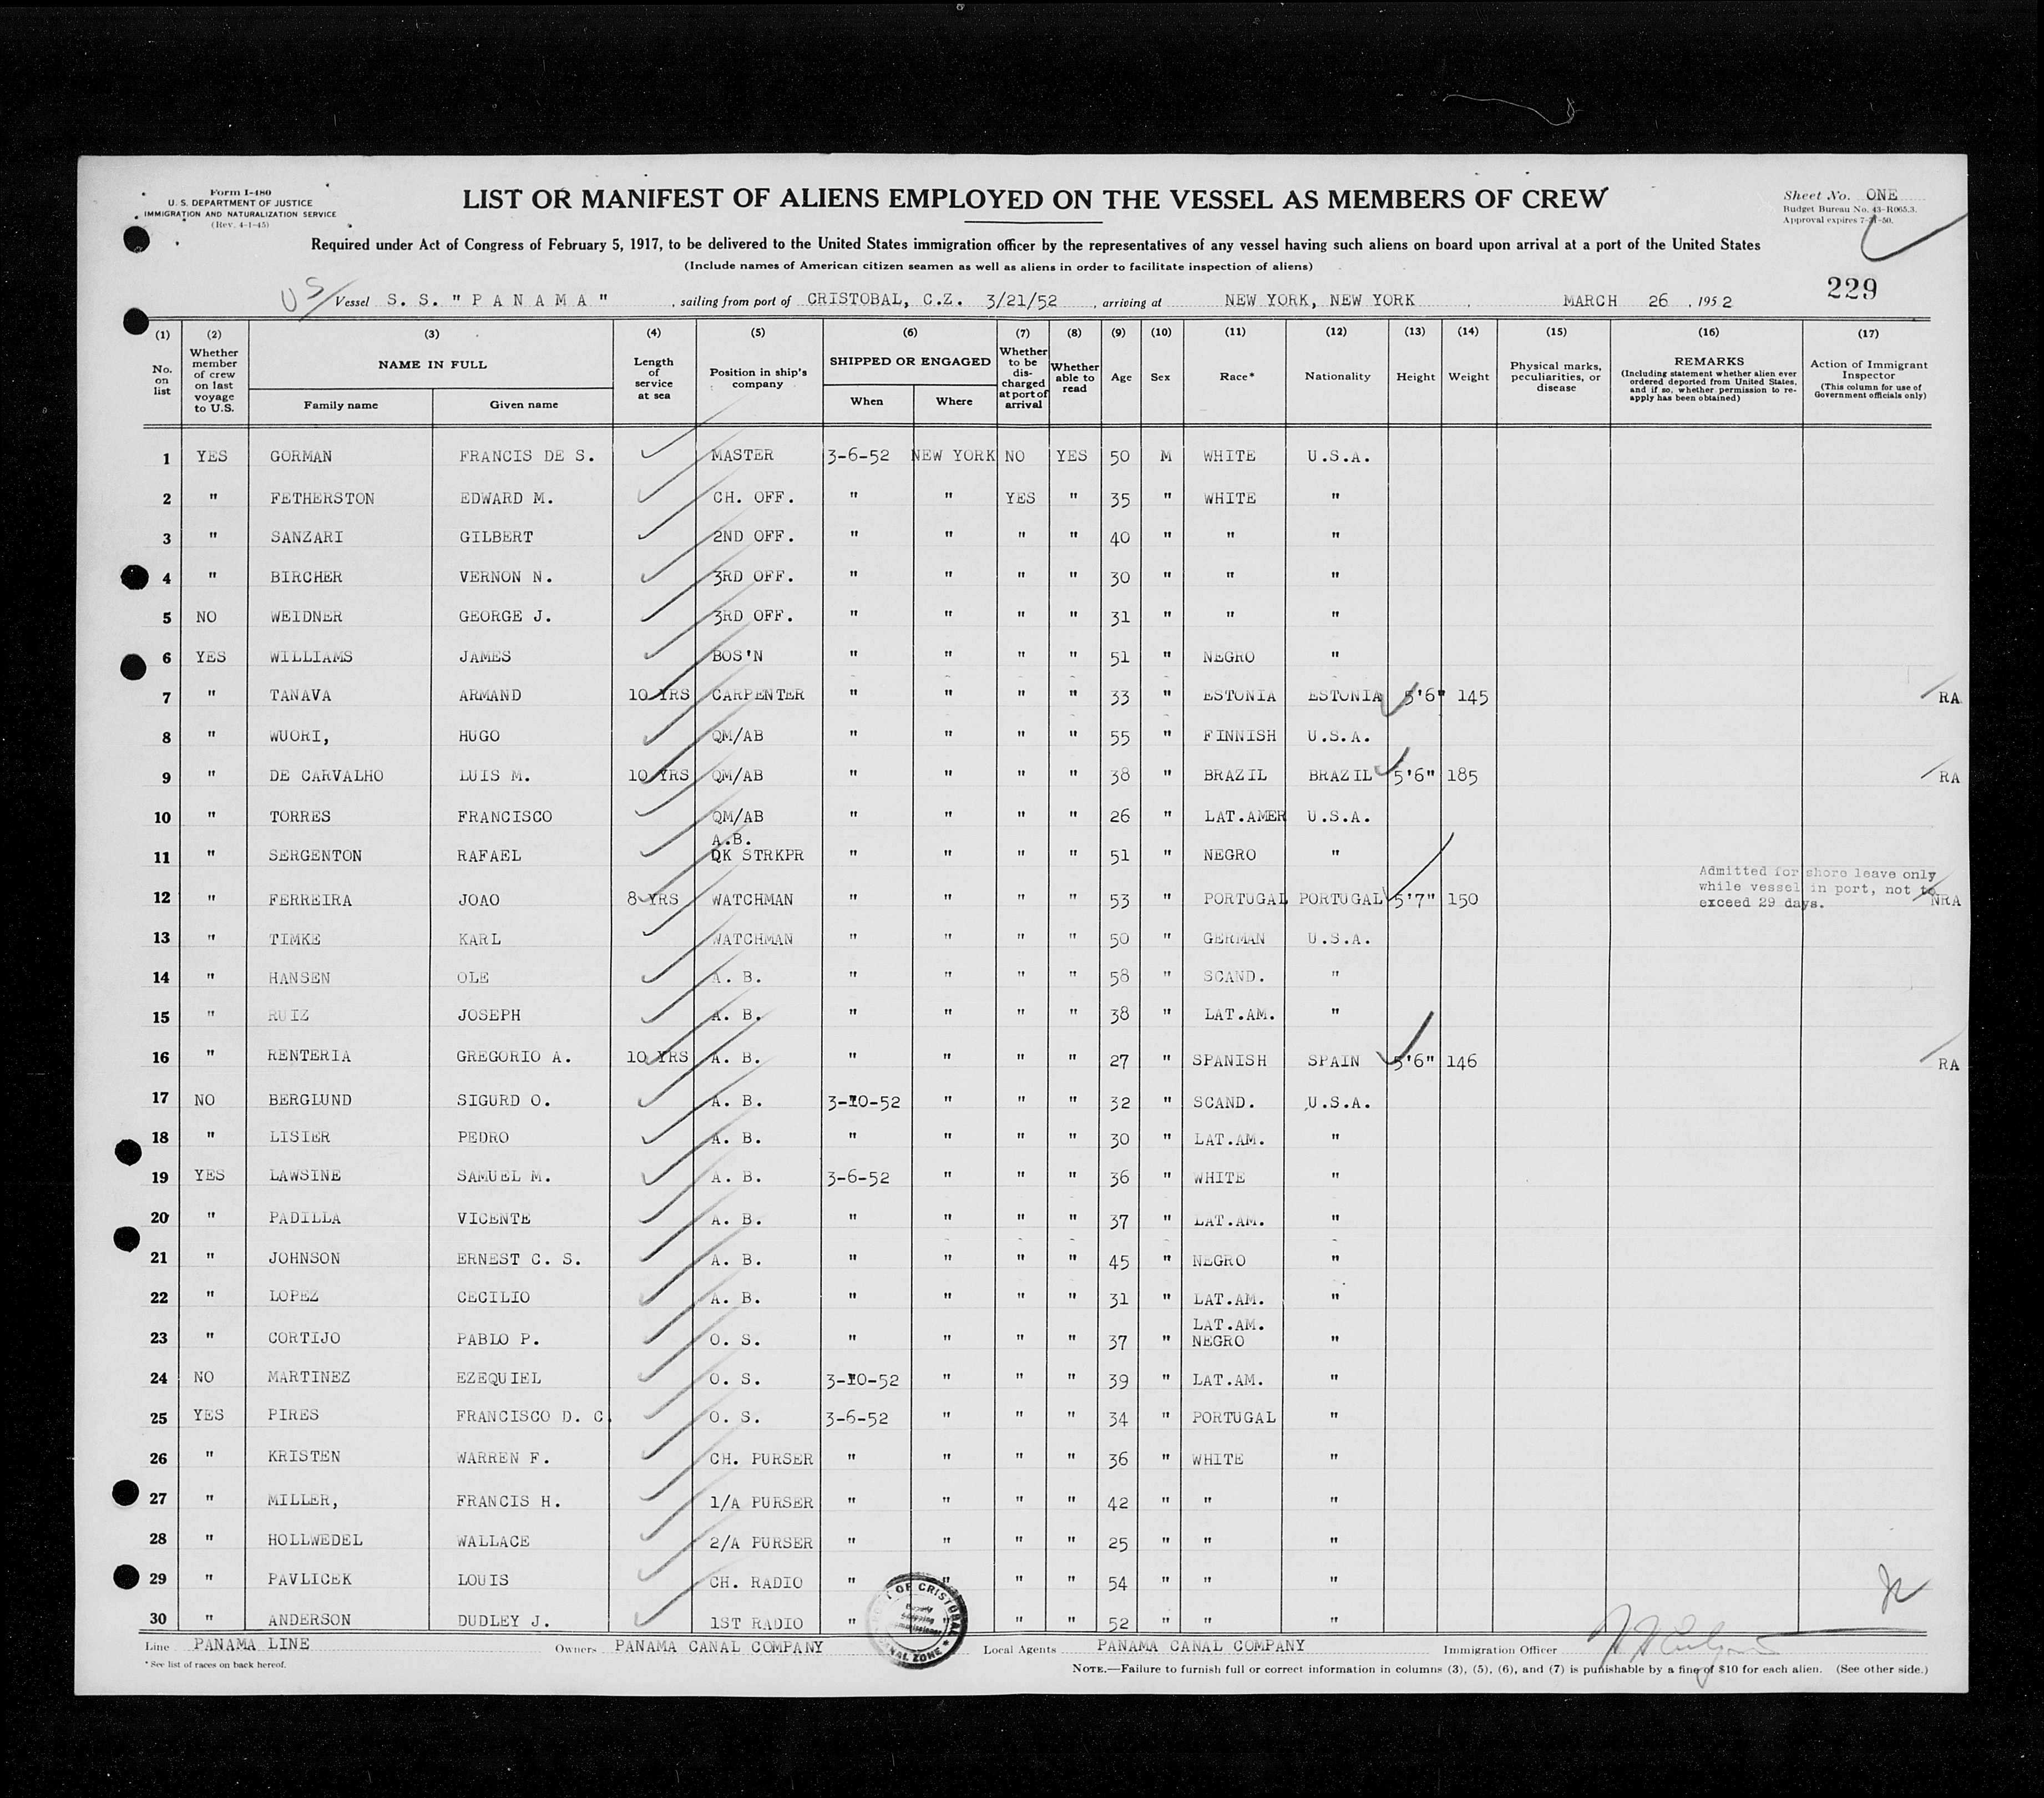 Form I-480
U. S. DEPARTMENT OF JUSTICE
IMMIGRATION AND NATURALIZATION SERVICE
(Rev. 4-1-45)
LIST OR MANIFEST OF ALIENS EMPLOYED ON THE VESSEL AS MEMBERS OF CREW
Sheet No. ONE
Budget Bureau No. 43-R065.3.
Approval expires 7-31-50.
Required under Act of Congress of February 5, 1917, to be delivered to the United States immigration officer by the representatives of any vessel having such aliens on board upon arrival at a port of the United States
(Include names of American citizen seamen as well as aliens in order to facilitate inspection of aliens)
229
US Vessel S. S. " P A N A M A " , sailing from port of CRISTOBAL, C.Z. 3/21/52 , arriving at NEW YORK, NEW YORK , MARCH 26 , 1952
(1) (2) (3) (4) (5) (6) (7) (8) (9) (10) (11) (12) (13) (14) (15) (16) (17)
No. on list
Whether member of crew on last voyage to U.S.
NAME IN FULL
Family name
Given name
Length of service at sea
Position in ship's company
SHIPPED OR ENGAGED
When
Where
Whether to be discharged at port of arrival
Whether able to read
Age
Sex
Race*
Nationality
Height
Weight
Physical marks, peculiarities, or disease
REMARKS
(Including statement whether alien ever ordered deported from United States, and if so, whether permission to re-apply has been obtained)
Action of Immigrant Inspector
(This column for use of Government officials only)
1 YES GORMAN FRANCIS DE S. MASTER 3-6-52 NEW YORK NO YES 50 M WHITE U.S.A.
2 " FETHERSTON EDWARD M. CH. OFF. " " YES " 35 " WHITE "
3 " SANZARI GILBERT 2ND OFF. " " " " 40 " " "
4 " BIRCHER VERNON N. 3RD OFF. " " " " 30 " " "
5 NO WEIDNER GEORGE J. 3RD OFF. " " " " 31 " " "
6 YES WILLIAMS JAMES BOS'N " " " " 51 " NEGRO "
7 " TANAVA ARMAND 10 YRS CARPENTER " " " " 33 " ESTONIA ESTONIA 5'6" 145 RA
8 " WUORI, HUGO QM/AB " " " " 55 " FINNISH U.S.A.
9 " DE CARVALHO LUIS M. 10 YRS QM/AB " " " " 38 " BRAZIL BRAZIL 5'6" 185 RA
10 " TORRES FRANCISCO QM/AB " " " " 26 " LAT.AMER U.S.A.
11 " SERGENTON RAFAEL A.B. DK STRKPR " " " " 51 " NEGRO "
12 " FERREIRA JOAO 8 YRS WATCHMAN " " " " 53 " PORTUGAL PORTUGAL 5'7" 150 Admitted for shore leave only while vessel in port, not to exceed 29 days. NRA
13 " TIMKE KARL WATCHMAN " " " " 50 " GERMAN U.S.A.
14 " HANSEN OLE A. B. " " " " 58 " SCAND. "
15 " RUIZ JOSEPH A. B. " " " " 38 " LAT.AM. "
16 " RENTERIA GREGORIO A. 10 YRS A. B. " " " " 27 " SPANISH SPAIN 5'6" 146 RA
17 NO BERGLUND SIGURD O. A. B. 3-10-52 " " " 32 " SCAND. U.S.A.
18 " LISIER PEDRO A. B. " " " " 30 " LAT.AM. "
19 YES LAWSINE SAMUEL M. A. B. 3-6-52 " " " 36 " WHITE "
20 " PADILLA VICENTE A. B. " " " " 37 " LAT.AM. "
21 " JOHNSON ERNEST C. S. A. B. " " " " 45 " NEGRO "
22 " LOPEZ CECILIO A. B. " " " " 31 " LAT.AM. "
23 " CORTIJO PABLO P. O. S. " " " " 37 " LAT.AM. NEGRO "
24 NO MARTINEZ EZEQUIEL O. S. 3-10-52 " " " 39 " LAT.AM. "
25 YES PIRES FRANCISCO D. C. O. S. 3-6-52 " " " 34 " PORTUGAL "
26 " KRISTEN WARREN F. CH. PURSER " " " " 36 " WHITE "
27 " MILLER, FRANCIS H. 1/A PURSER " " " " 42 " " "
28 " HOLLWEDEL WALLACE 2/A PURSER " " " " 25 " " "
29 " PAVLICEK LOUIS CH. RADIO " " " " 54 " " "
30 " ANDERSON DUDLEY J. 1ST RADIO " " " " 52 " " "
OF CRISTOBAL
Deputy Shipping Commissioner
CANAL ZONE
Line PANAMA LINE Owners PANAMA CANAL COMPANY Local Agents PANAMA CANAL COMPANY Immigration Officer
* See list of races on back hereof.
NOTE.—Failure to furnish full or correct information in columns (3), (5), (6), and (7) is punishable by a fine of $10 for each alien. (See other side.)